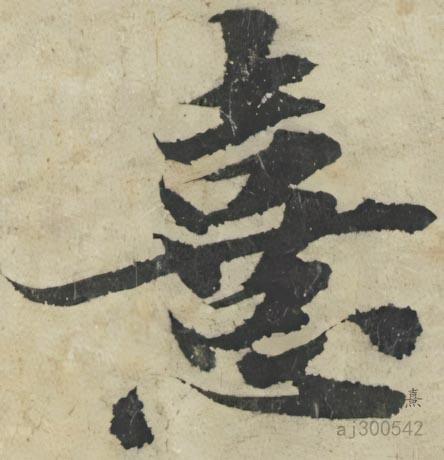 憙
熹
aj300542